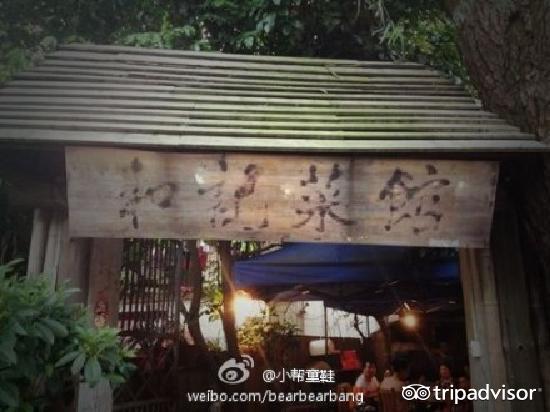 和記菜館
@小帮童鞋
weibo.com/bearbearbang
tripadvisor®